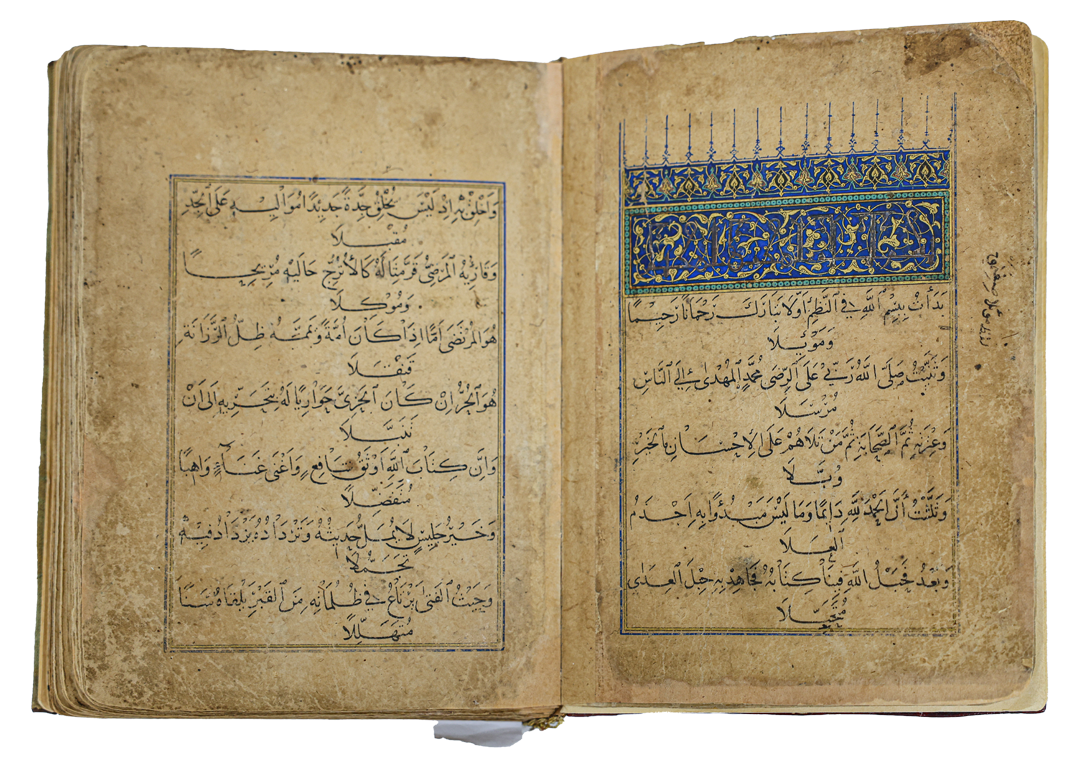 بَدَأْتُ بِبِسْمِ اللَّهِ فِي النَّظْمِ أَوَّلَا تَبَارَكَ رَحْمَانًا رَحِيمًا
وَمَوْئِلَا
وَثَنَّيْتُ صَلَّى اللَّهُ رَبِّي عَلَى الرِّضَى مُحَمَّدٍ الْمُهْدَى إِلَى النَّاسِ
مُرْسَلَا
وَعِتْرَتِهِ ثُمَّ الصَّحَابَةِ ثُمَّ مَنْ تَلَاهُمْ عَلَى الْإِحْسَانِ بِالْخَيْرِ
وُبَّلَا
وَثَلَّثْتُ أَنَّ الْحَمْدَ لِلَّهِ دَائِمًا وَمَا لَيْسَ مَبْدُوءًا بِهِ أَجْذَمُ
الْعَلَا
وَبَعْدُ فَحَبْلُ اللَّهِ فِينَا كِتَابُهُ فَجَاهِدْ بِهِ حِبْلَ الْعِدَى
مُتَحَبِّلَا
وَأَخْلِقْ بِهِ إِذْ لَيْسَ يُخْلِقُ جِدَّةً جَدِيدًا مُوَالِيهِ عَلَى الْجِدِّ
مُقْبِلَا
وَقَارِئُهُ الْمَرْضِيُّ قَرَّ مِثَالُهُ كَالْأُتْرُجِّ حَالَيْهِ مُرِيحًا
وَمُوكِلَا
هُوَ الْمُرْتَضَى أَمًّا إِذَا كَانَ أُمَّةً وَيَمَّمَهُ ظِلُّ الرَّزَانَةِ
قَنْقَلَا
هُوَ الْحُرُّ إِنْ كَانَ الْحَرِيَّ حَوَارِيًّا لَهُ بِتَحَرِّيهِ إِلَى أَنْ
تَنَبَّلَا
وَإِنَّ كِتَابَ اللَّهِ أَوْثَقُ شَافِعٍ وَأَغْنَى غَنَاءٍ وَاهِبًا
مُتَفَضِّلَا
وَخَيْرُ جَلِيسٍ لَا يُمَلُّ حَدِيثُهُ وَتَرْدَادُهُ يَزْدَادُ فِيهِ
تَجَمُّلَا
وَحَيْثُ الْفَتَى يَرْتَاعُ فِي ظُلُمَاتِهِ مِنَ الْقَبْرِ يَلْقَاهُ سَنًا
مُتَهَلِّلَا